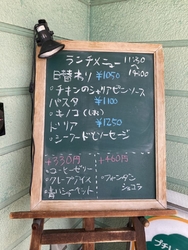 ランチメニュー 11:30
14:00
日替わり ¥1050
・チキンのシャリアピンソース
パスタ ¥1100
・キノコ
ドリア ¥1250
・シーフードとソーセージ
+330円
・コーヒーゼリー
・クレープグラス
+460円
・フォンダン
ショコラ
プチ